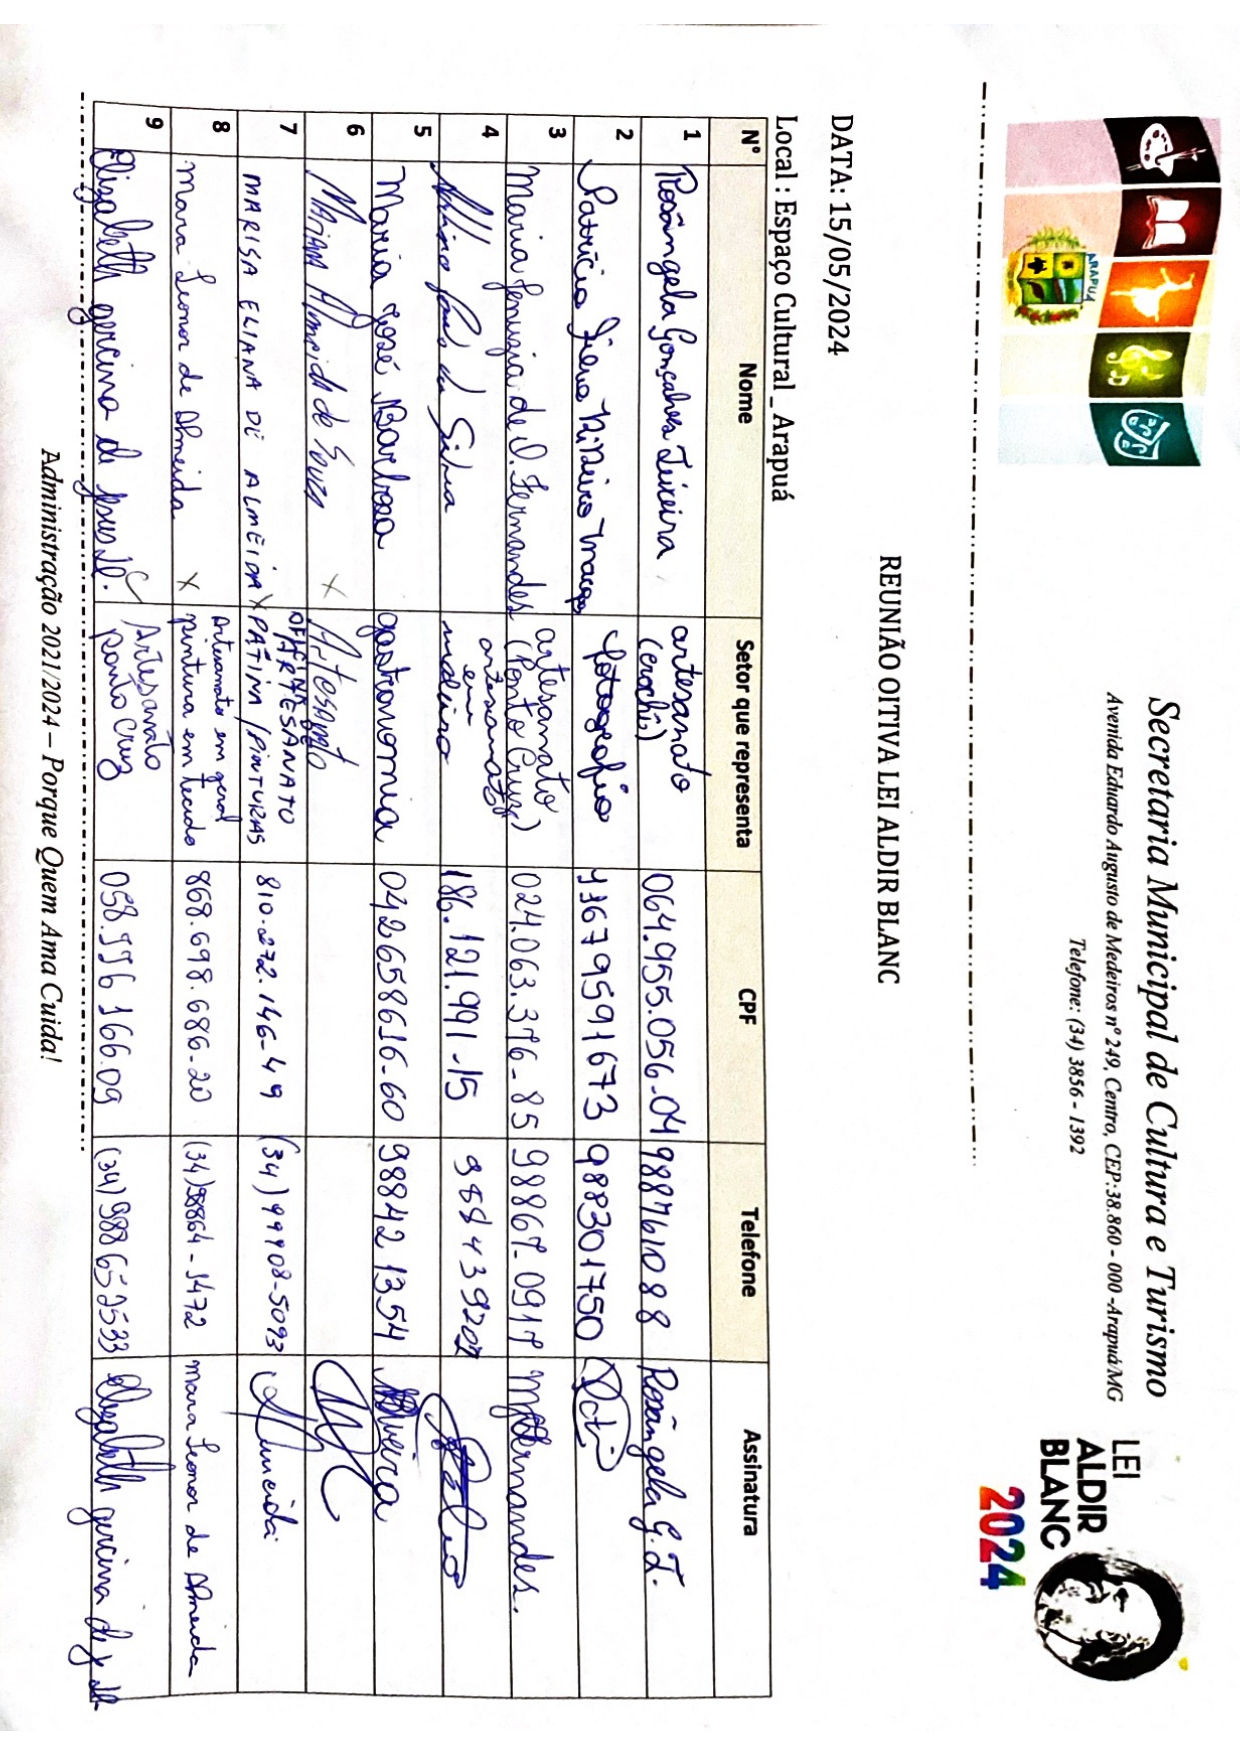 ARAPUÁ
Secretaria Municipal de Cultura e Turismo
Avenida Eduardo Augusto de Medeiros nº 249, Centro, CEP:38.860 - 000 -Arapuá/MG
Telefone: (34) 3856 - 1392
LEI
ALDIR
BLANC
2024
REUNIÃO OITIVA LEI ALDIR BLANC
DATA: 15/05/2024
Local : Espaço Cultural _ Arapuá
Nº Nome Setor que representa CPF Telefone Assinatura
1 Rosângela Gonçalves Teixeira artesanato (crochê) 064.955.056-04 988761088 Rosângela G. T.
2 Patrícia Ribeiro fotografia 11679591673 988301750
3 Maria de O. Fernandes artesanato (Ponto Cruz) 024.063.376-85 98867-0917
4 Paulo da Silva artesanato em madeira 186.121.991-15
5 Maria José Barbosa gastronomia 042658616-60 98842 1354
6 Mariana Almeida de Souza X Artesanato
7 MARISA ELIANA DE ALMEIDA X OFICINA DE ARTESANATO PÁTINA/PINTURAS 810.272.146-49 (34) 99908-5093 Almeida
8 Mara Leonor de Almeida X Artesanato em geral pintura em tecido 868.698.686-20 (34)98864-1472 Mara Leonor de Almeida
9 Elizabeth gercina de Jesus Artesanato ponto Cruz (34) 988652533 Elizabeth gercina de J
Administração 2021/2024 – Porque Quem Ama Cuida!